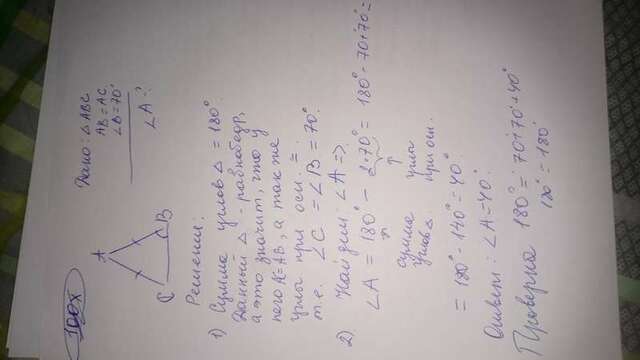 100x
Дано: △ABC
AB = AC
∠B = 70°
∠A - ?
A
C
B
Решение:
1) Сумма углов △ = 180°.
Данный △ - равнобедр,
а это значит, что у
него AC=AB, а так же
углы при осн. =.
т.е. ∠C = ∠B = 70°.
2) Найдем ∠A =>
∠A = 180° - 2·70° = 180° - 70°+70° =
сумма углов △.
углы при осн.
= 180° - 140° = 40°.
Ответ: ∠A = 40°.
Проверка 180° = 70°+70°+40°
180° = 180°